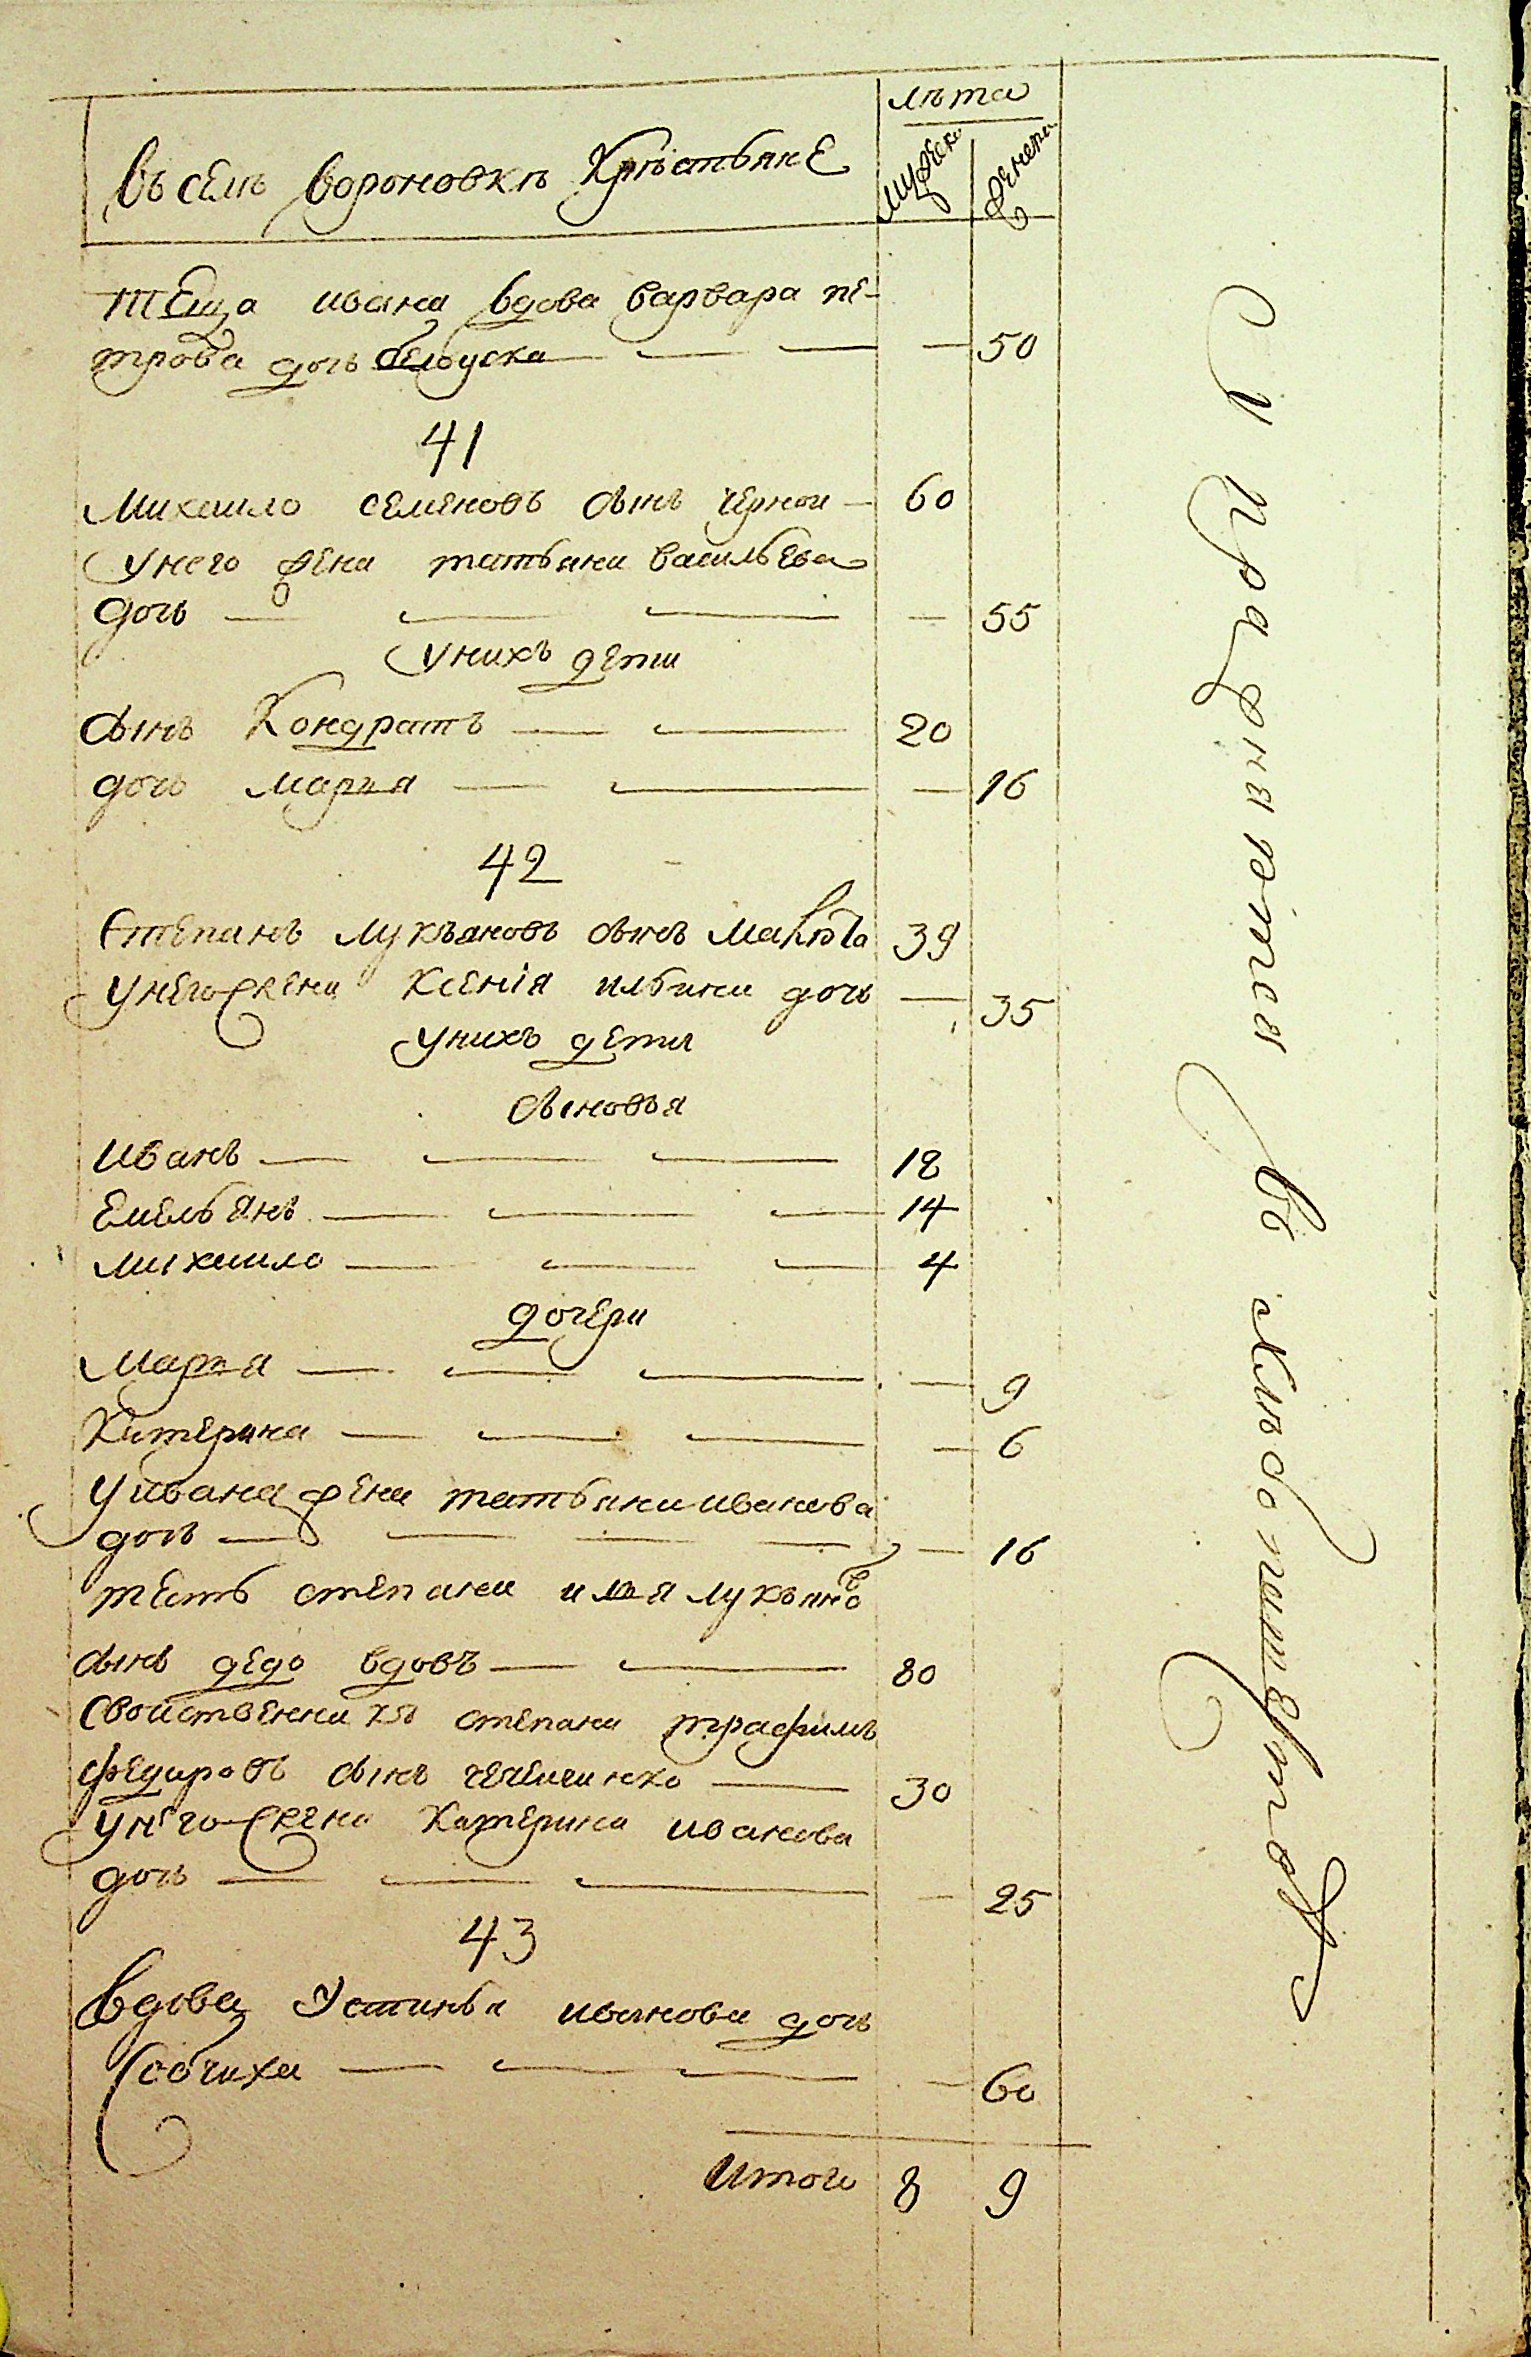 лѣта
въ селѣ вороновкѣ крѣстьянЕ
мужеска
женска
тЕща ивана вдова варвара пе-
трова дочь 50
41
михаило семеновъ сынъ чернои 60
унего жена татьяна васильева
дочь 55
унихъ дети
сынъ Кондратъ 20
дочь марья 16
42
Степанъ лукъяновъ сынъ 39
унего жена Ксенія ильина дочь 35
унихъ дети
сыновья
иванъ 18
Емельянъ 14
михаило 4
дочери
марья 9
Катерина 6
у ивана жена татьяна иванова
дочь 16
тесть степана илья лукъяновъ
сынъ дедо вдовъ 80
свойственникъ степана трафимъ
федоровъ сынъ 30
унего жена Катерина иванова
дочь 25
43
вдова Устинья иванова дочь
60
Итого 8 9
въ